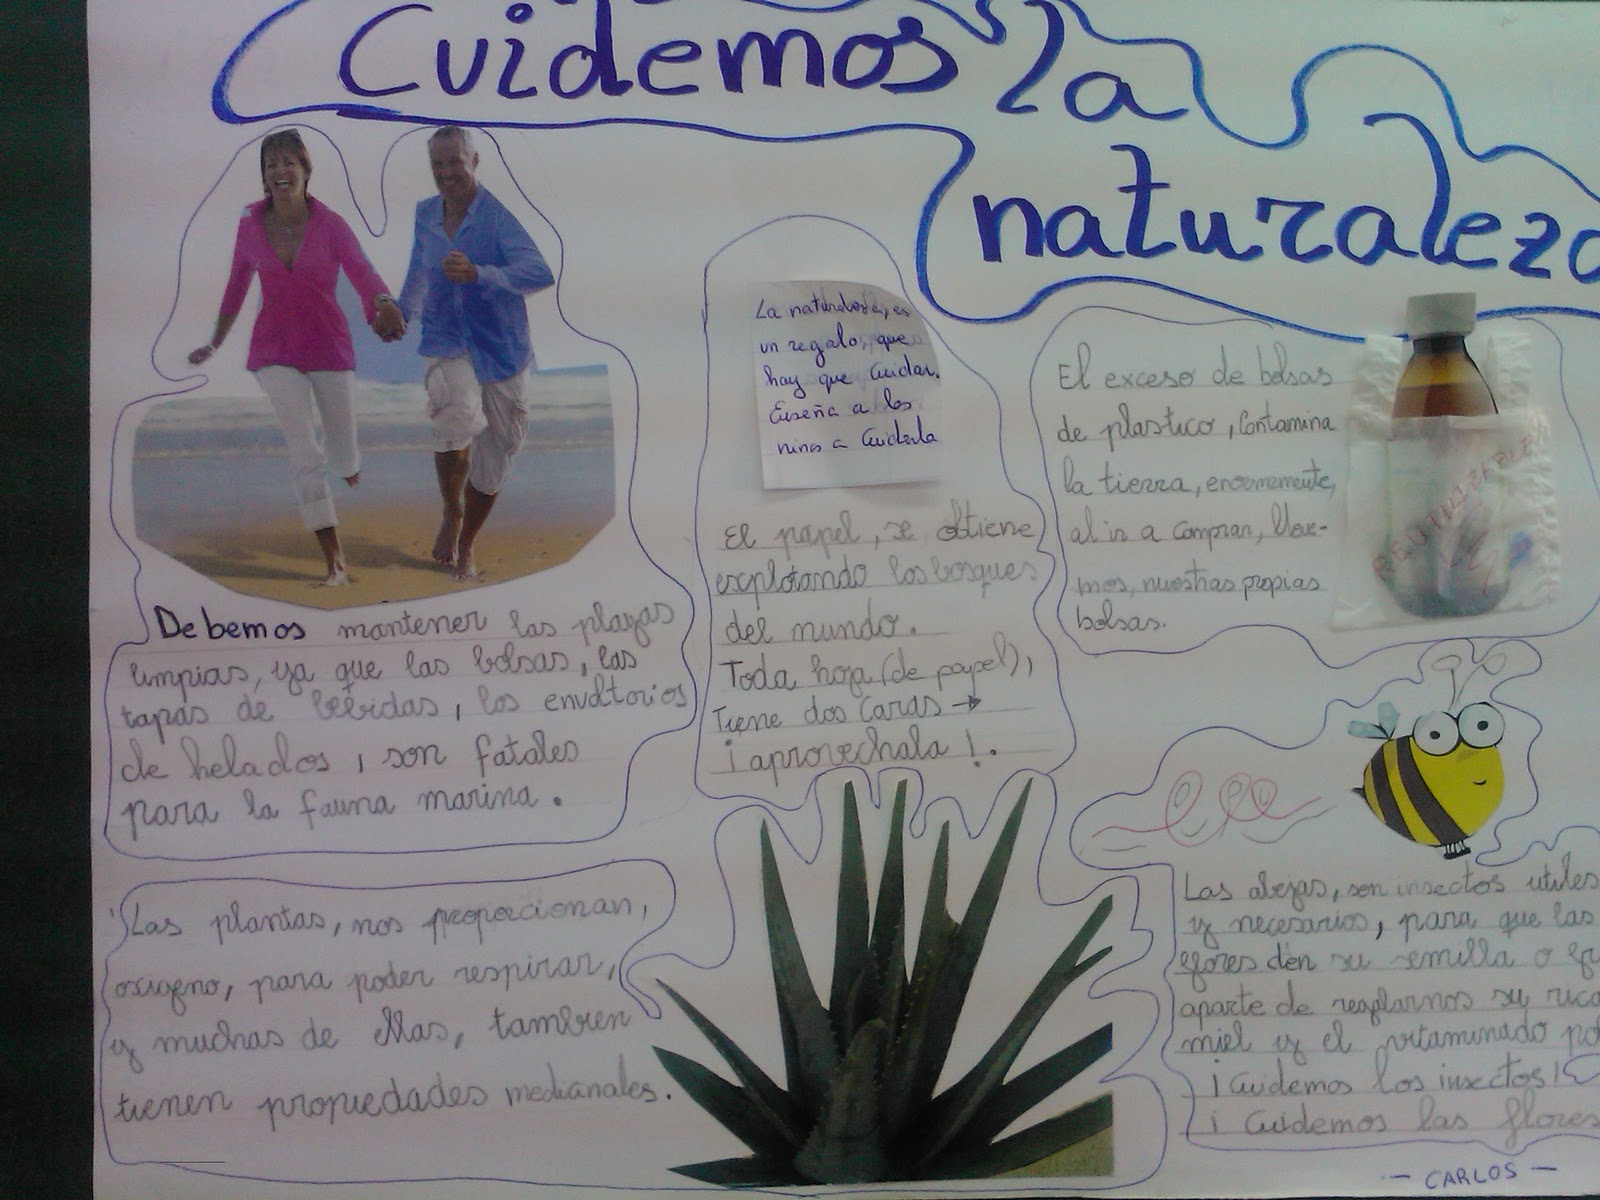 Cuidemos la
naturaleza
La naturaleza, es
un regalo, que
hay que cuidar.
Enseña a los
niños a cuidarla
El papel, se obtiene
explotando los bosques
del mundo.
Toda hoja (de papel),
Tiene dos caras →
¡aprovechala!.
El exceso de bolsas
de plastico, contamina
la tierra, enormemente,
al ir a comprar, lleve-
mos, nuestras propias
bolsas.
REUTILIZABLE
Debemos mantener las playas
limpias, ya que las bolsas, las
tapas de bebidas, los envoltorios
de helados, son fatales
para la fauna marina.
Las plantas, nos proporcionan,
oxigeno, para poder respirar,
y muchas de ellas, tambien
tienen propiedades medicinales.
Las abejas, son insectos utiles
y necesarios, para que las
flores den su semilla o
aparte de regalarnos su rica
miel y el vitaminado
¡Cuidemos los insectos!
¡Cuidemos las flores
- CARLOS -